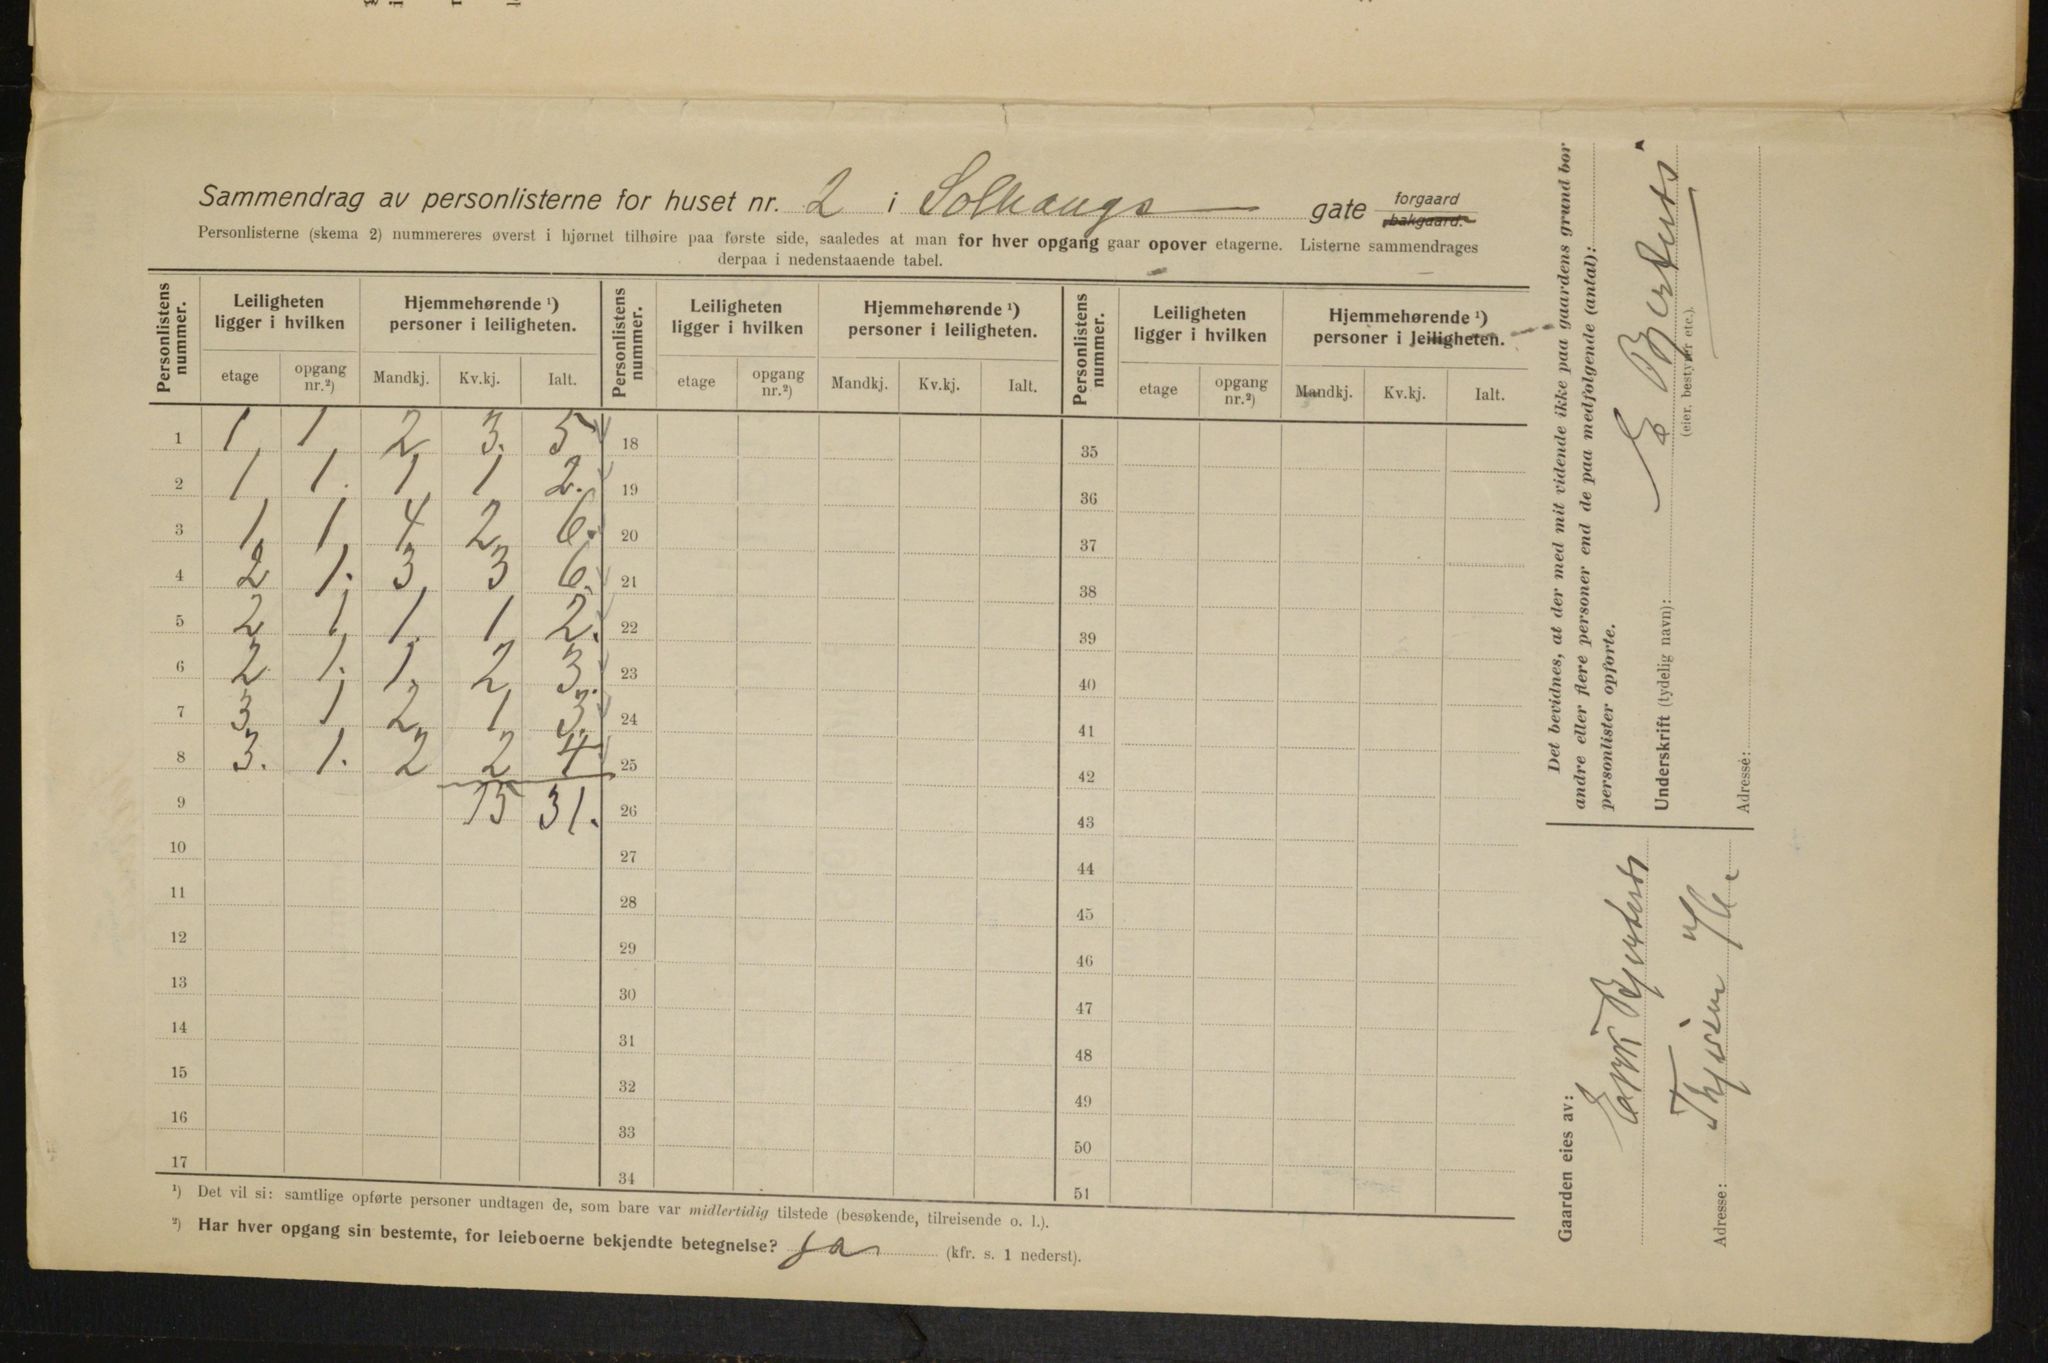 Sammendrag av personlisterne for huset nr. 2 i Solhaugs gate forgaard bakgaard.
Personlisterne (skema 2) nummereres øverst i hjørnet tilhøire paa første side, saaledes at man for hver opgang gaar opover etagerne. Listerne sammendrages
derpaa i nedenstaaende tabel.
Personlistens nummer. Leiligheten ligger i hvilken Hjemmehørende ¹) personer i leiligheten. Personlistens nummer. Leiligheten ligger i hvilken Hjemmehørende ¹) personer i leiligheten. Personlistens nummer. Leiligheten ligger i hvilken Hjemmehørende ¹) personer i leiligheten.
etage opgang nr.²) Mandkj. Kv.kj. Ialt. etage opgang nr.²) Mandkj. Kv.kj. Ialt. etage opgang nr.²) Mandkj. Kv.kj. Ialt.
1 1 1 2 3. 5 18 35
2 1 1. 1 1 2. 19 36
3 1 1 4 2 6. 20 37
4 2 1. 3 3 6. 21 38
5 2 1 1. 1 2. 22 39
6 2 1. 1. 2 3. 23 40
7 3 1 2 1 3. 24 41
8 3. 1. 2 2 4 25 42
9 15 31. 26 43
10 27 44
11 28 45
12 29 46
13 30 47
14 31 48
15 32 49
16 33 50
17 34 51
¹) Det vil si: samtlige opførte personer undtagen de, som bare var midlertidig tilstede (besøkende, tilreisende o. l.).
²) Har hver opgang sin bestemte, for leieboerne bekjendte betegnelse? ja (kfr. s. 1 nederst).
Det bevidnes, at der med mit vidende ikke paa gaardens grund bor
andre eller flere personer end de paa medfølgende (antal):
personlister opførte.
Underskrift (tydelig navn): E
(eier, bestyrer etc.).
Adresse:
Gaarden eies av:
Adresse: